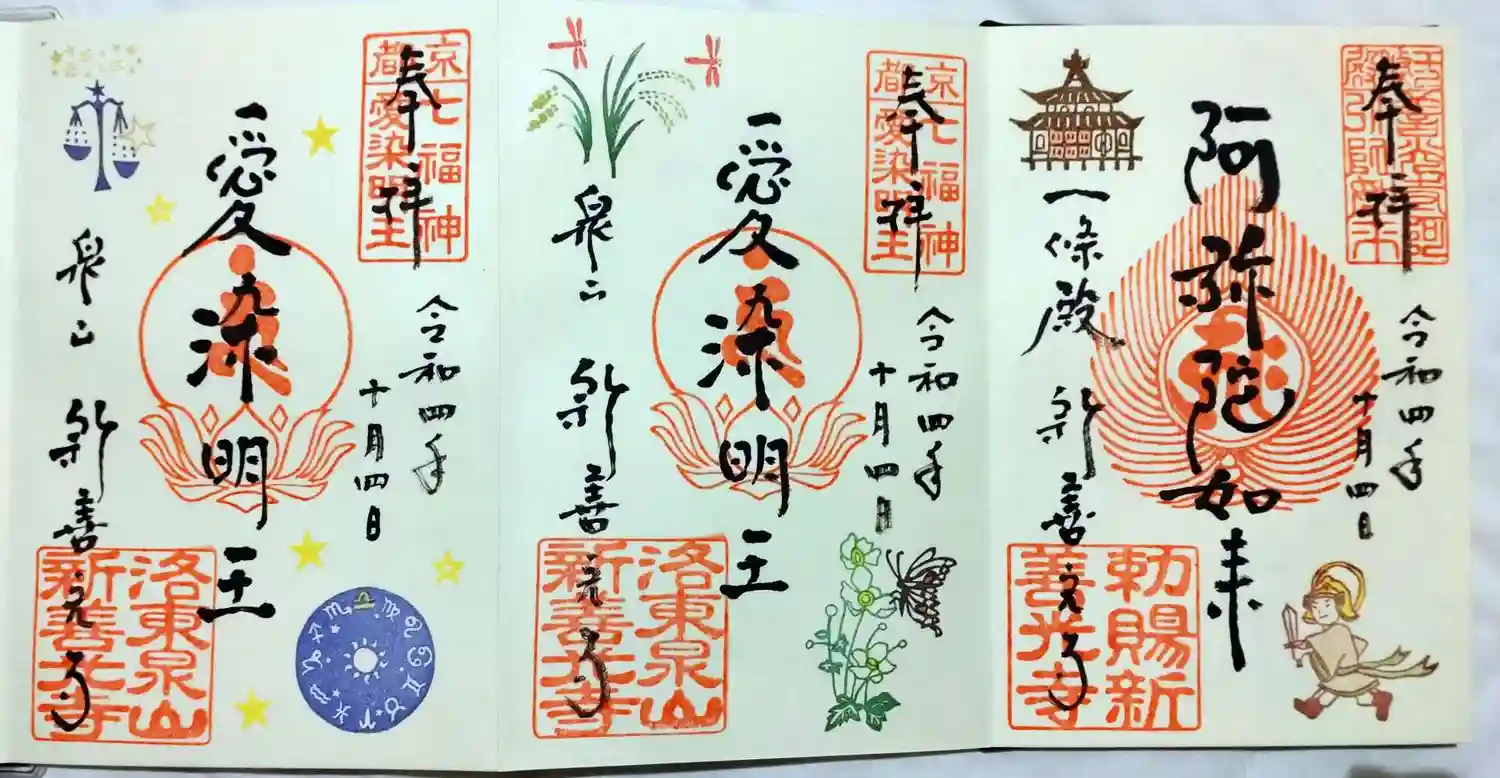 奉拝
京都
七福神
愛染明王
令和四年
十月四日
愛染明王
泉山
新善光寺
洛東泉山
新善光寺
奉拝
京都
七福神
愛染明王
令和四年
十月四日
愛染明王
泉山
新善光寺
洛東泉山
新善光寺
奉拝
令和四年
十月四日
阿弥陀如来
一條殿
新善光寺
勅賜新
善光寺